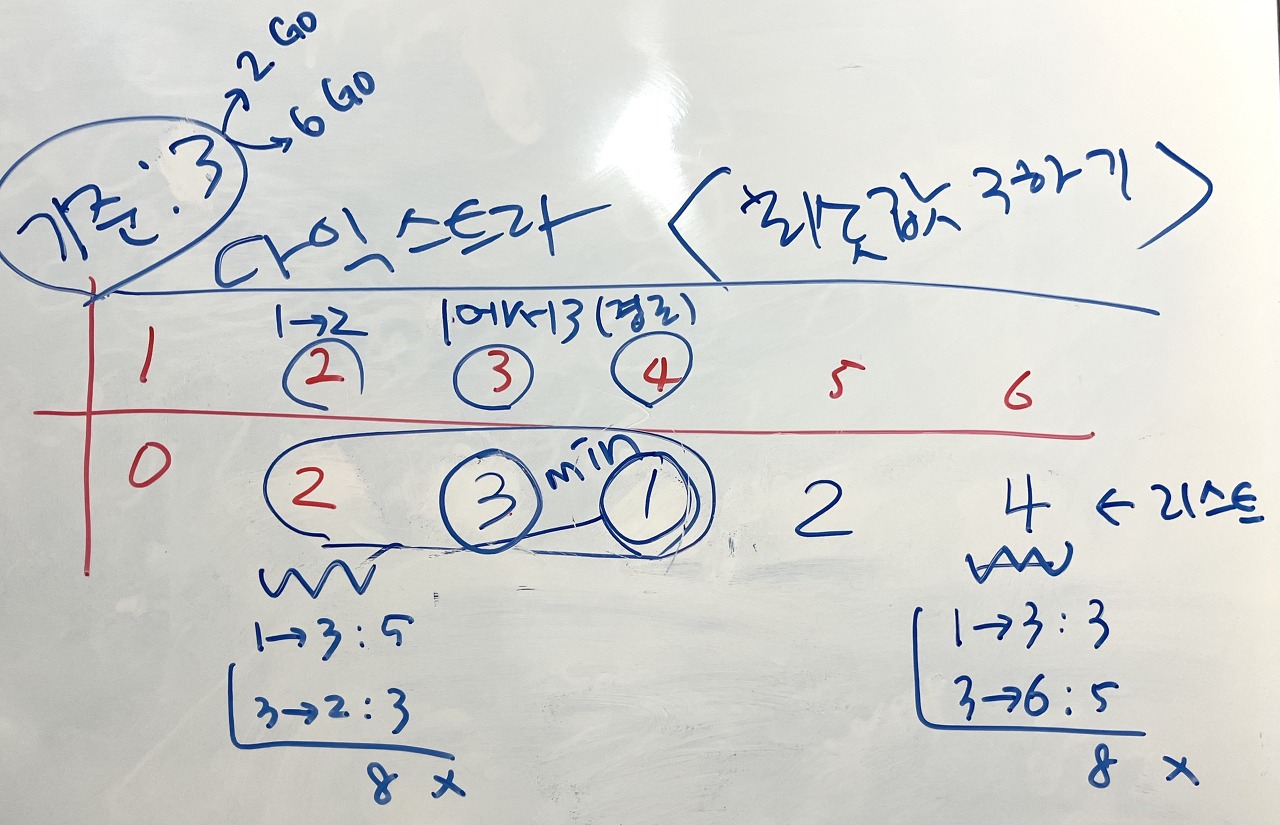 2 GO
6 GO
기준:3
다익스트라 <최솟값 구하기>
1→2 1에서3(경로)
1 2 3 4 5 6
min
0 2 3 1 2 4 ← 리스트
1→3:5
3→2:3
8 x
1→3:3
3→6:5
8 x